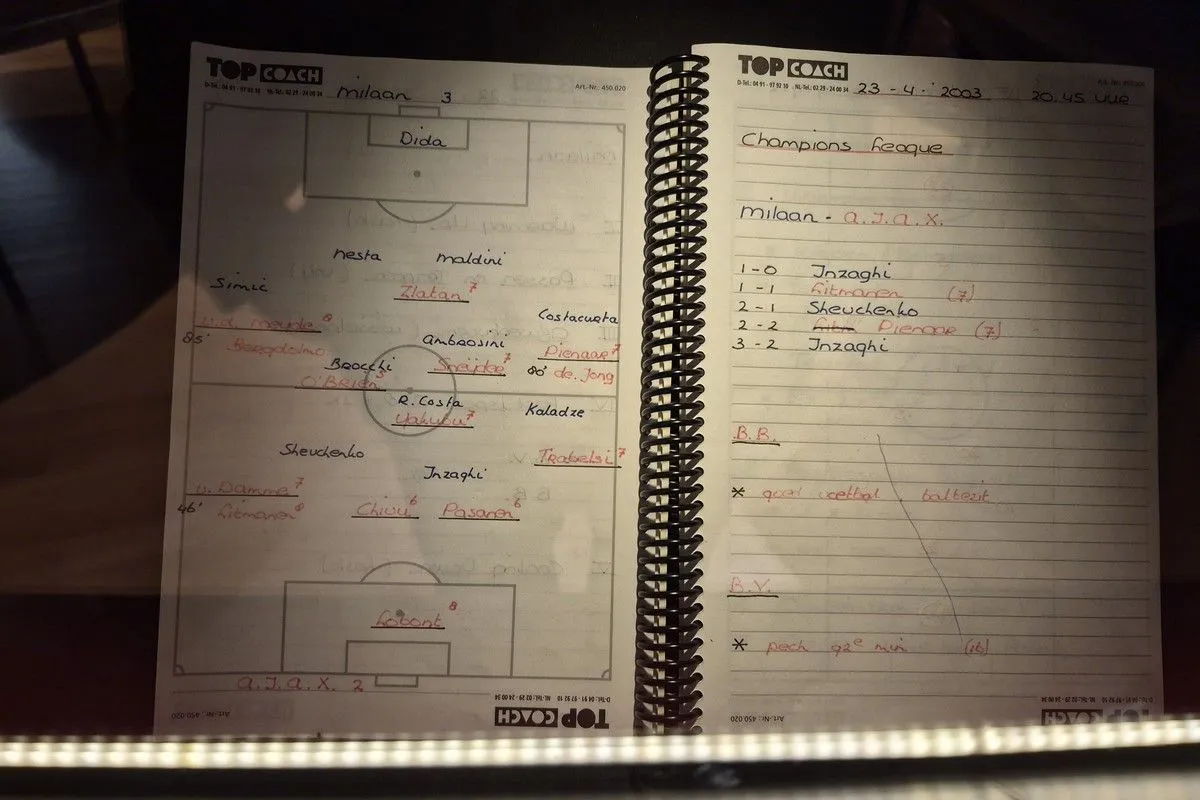 TOP COACH
D-Tel.: 04 91 - 97 92 10 NL-Tel.: 02 29 - 24 00 34
milaan 3
Art.-Nr.: 450.020
Dida
nesta maldini
Simic
Zlatan 7
Costacurta
v.d. meyde 8
Ambrosini
85'
Bergdolmo
Sneijder 7
Pienaar 7
Brocchi
80' de. Jong
O'Brien 5
R. Costa
Kaladze
Yakubu 7
Sheuchenko
Trabelsi 7
Inzaghi
v. Damme 7
46' Litmanen 8
Chivu 6
Pasanen 6
Lobont 8
a.J.a.X. 2
D-Tel.: 04 91 - 97 92 10 NL-Tel.: 02 29 - 24 00 34
TOP COACH
Art.-Nr.: 450.020
TOP COACH
D-Tel.: 04 91 - 97 92 10 NL-Tel.: 02 29 - 24 00 34
23 - 4 - 2003
20.45 uur
Art.-Nr.: 450.020
Champions Leaque
milaan - a.J.a.X.
1-0 Inzaghi
1-1 Litmanen (7)
2-1 Sheuchenko
2-2 Litm Pienaar (7)
3-2 Inzaghi
B.B.
* goed voetbal balbezit
B.V.
* pech 92e min (16)
Art.-Nr.: 450.020
TOP COACH